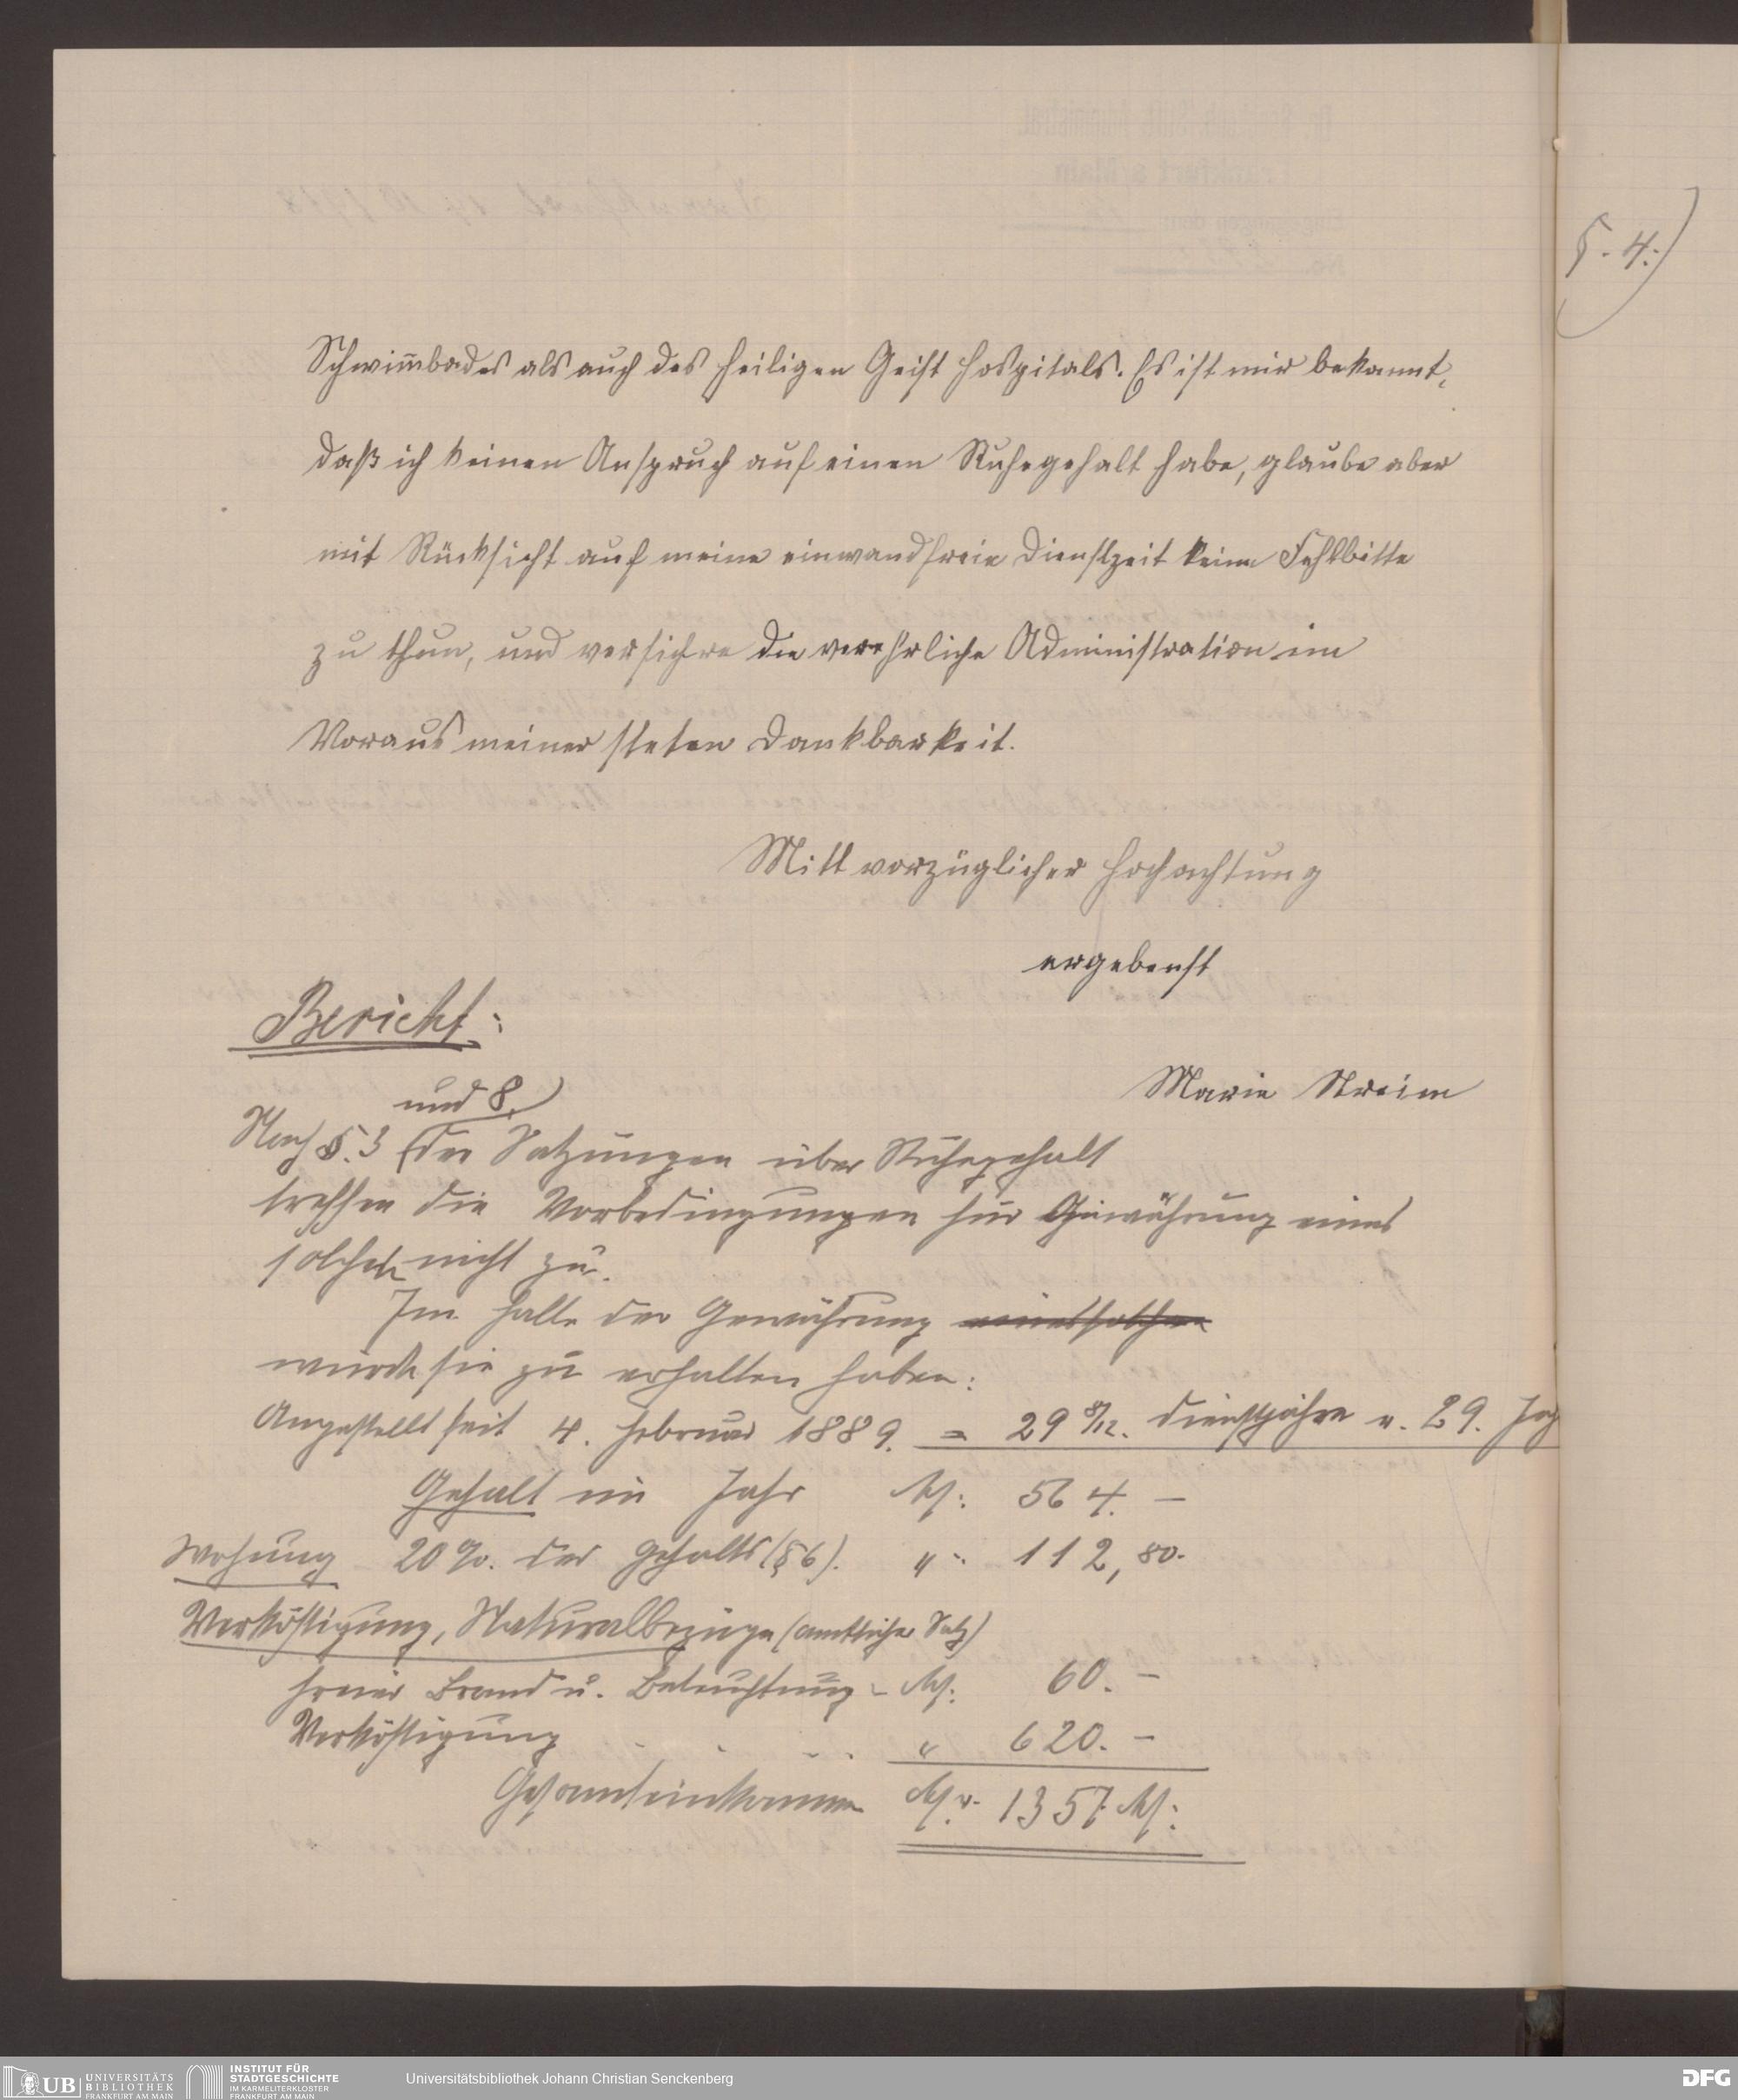 §. 4.)
Schwim̄bades als auch des heiligen Geist Hospitals. Es ist mir bekannt,
daß ich keinen Anspruch auf einen Ruhegehalt habe, glaube aber
mit Rücksicht auf meine einwandfreie Dienstzeit keine Fehlbitte
zu thun, und versichre die verehrliche Administration im
Voraus meiner steten Dankbarkeit.
Mitt vorzüglicher Hochachtung
ergebenst
Marie Streim
Bericht:
und 8.)
Nach §. 3 der Satzungen über Ruhegehalt
treffen die Vorbedingungen für Gewährung eines
solchen nicht zu.
Im Falle der Gewährung eines solchen
würde sie zu erhalten haben:
Angestellt seit 4. Februar 1889. = 29 8/12. Dienstjahre v. 29. Jah
Gehalt im Jahr M: 564. –
Wohnung 20%. des Gehalts (§ 6). " 112,80.
Verköstigung, Naturalbezüge (amtlicher Satz)
freier Brand u. Beleuchtung – M: 60. –
Verköstigung " 620. –
Gesamteinkommen M. 1357 M:
UB UNIVERSITÄTS
BIBLIOTHEK
FRANKFURT AM MAIN
INSTITUT FÜR
STADTGESCHICHTE
IM KARMELITERKLOSTER
FRANKFURT AM MAIN
Universitätsbibliothek Johann Christian Senckenberg
DFG